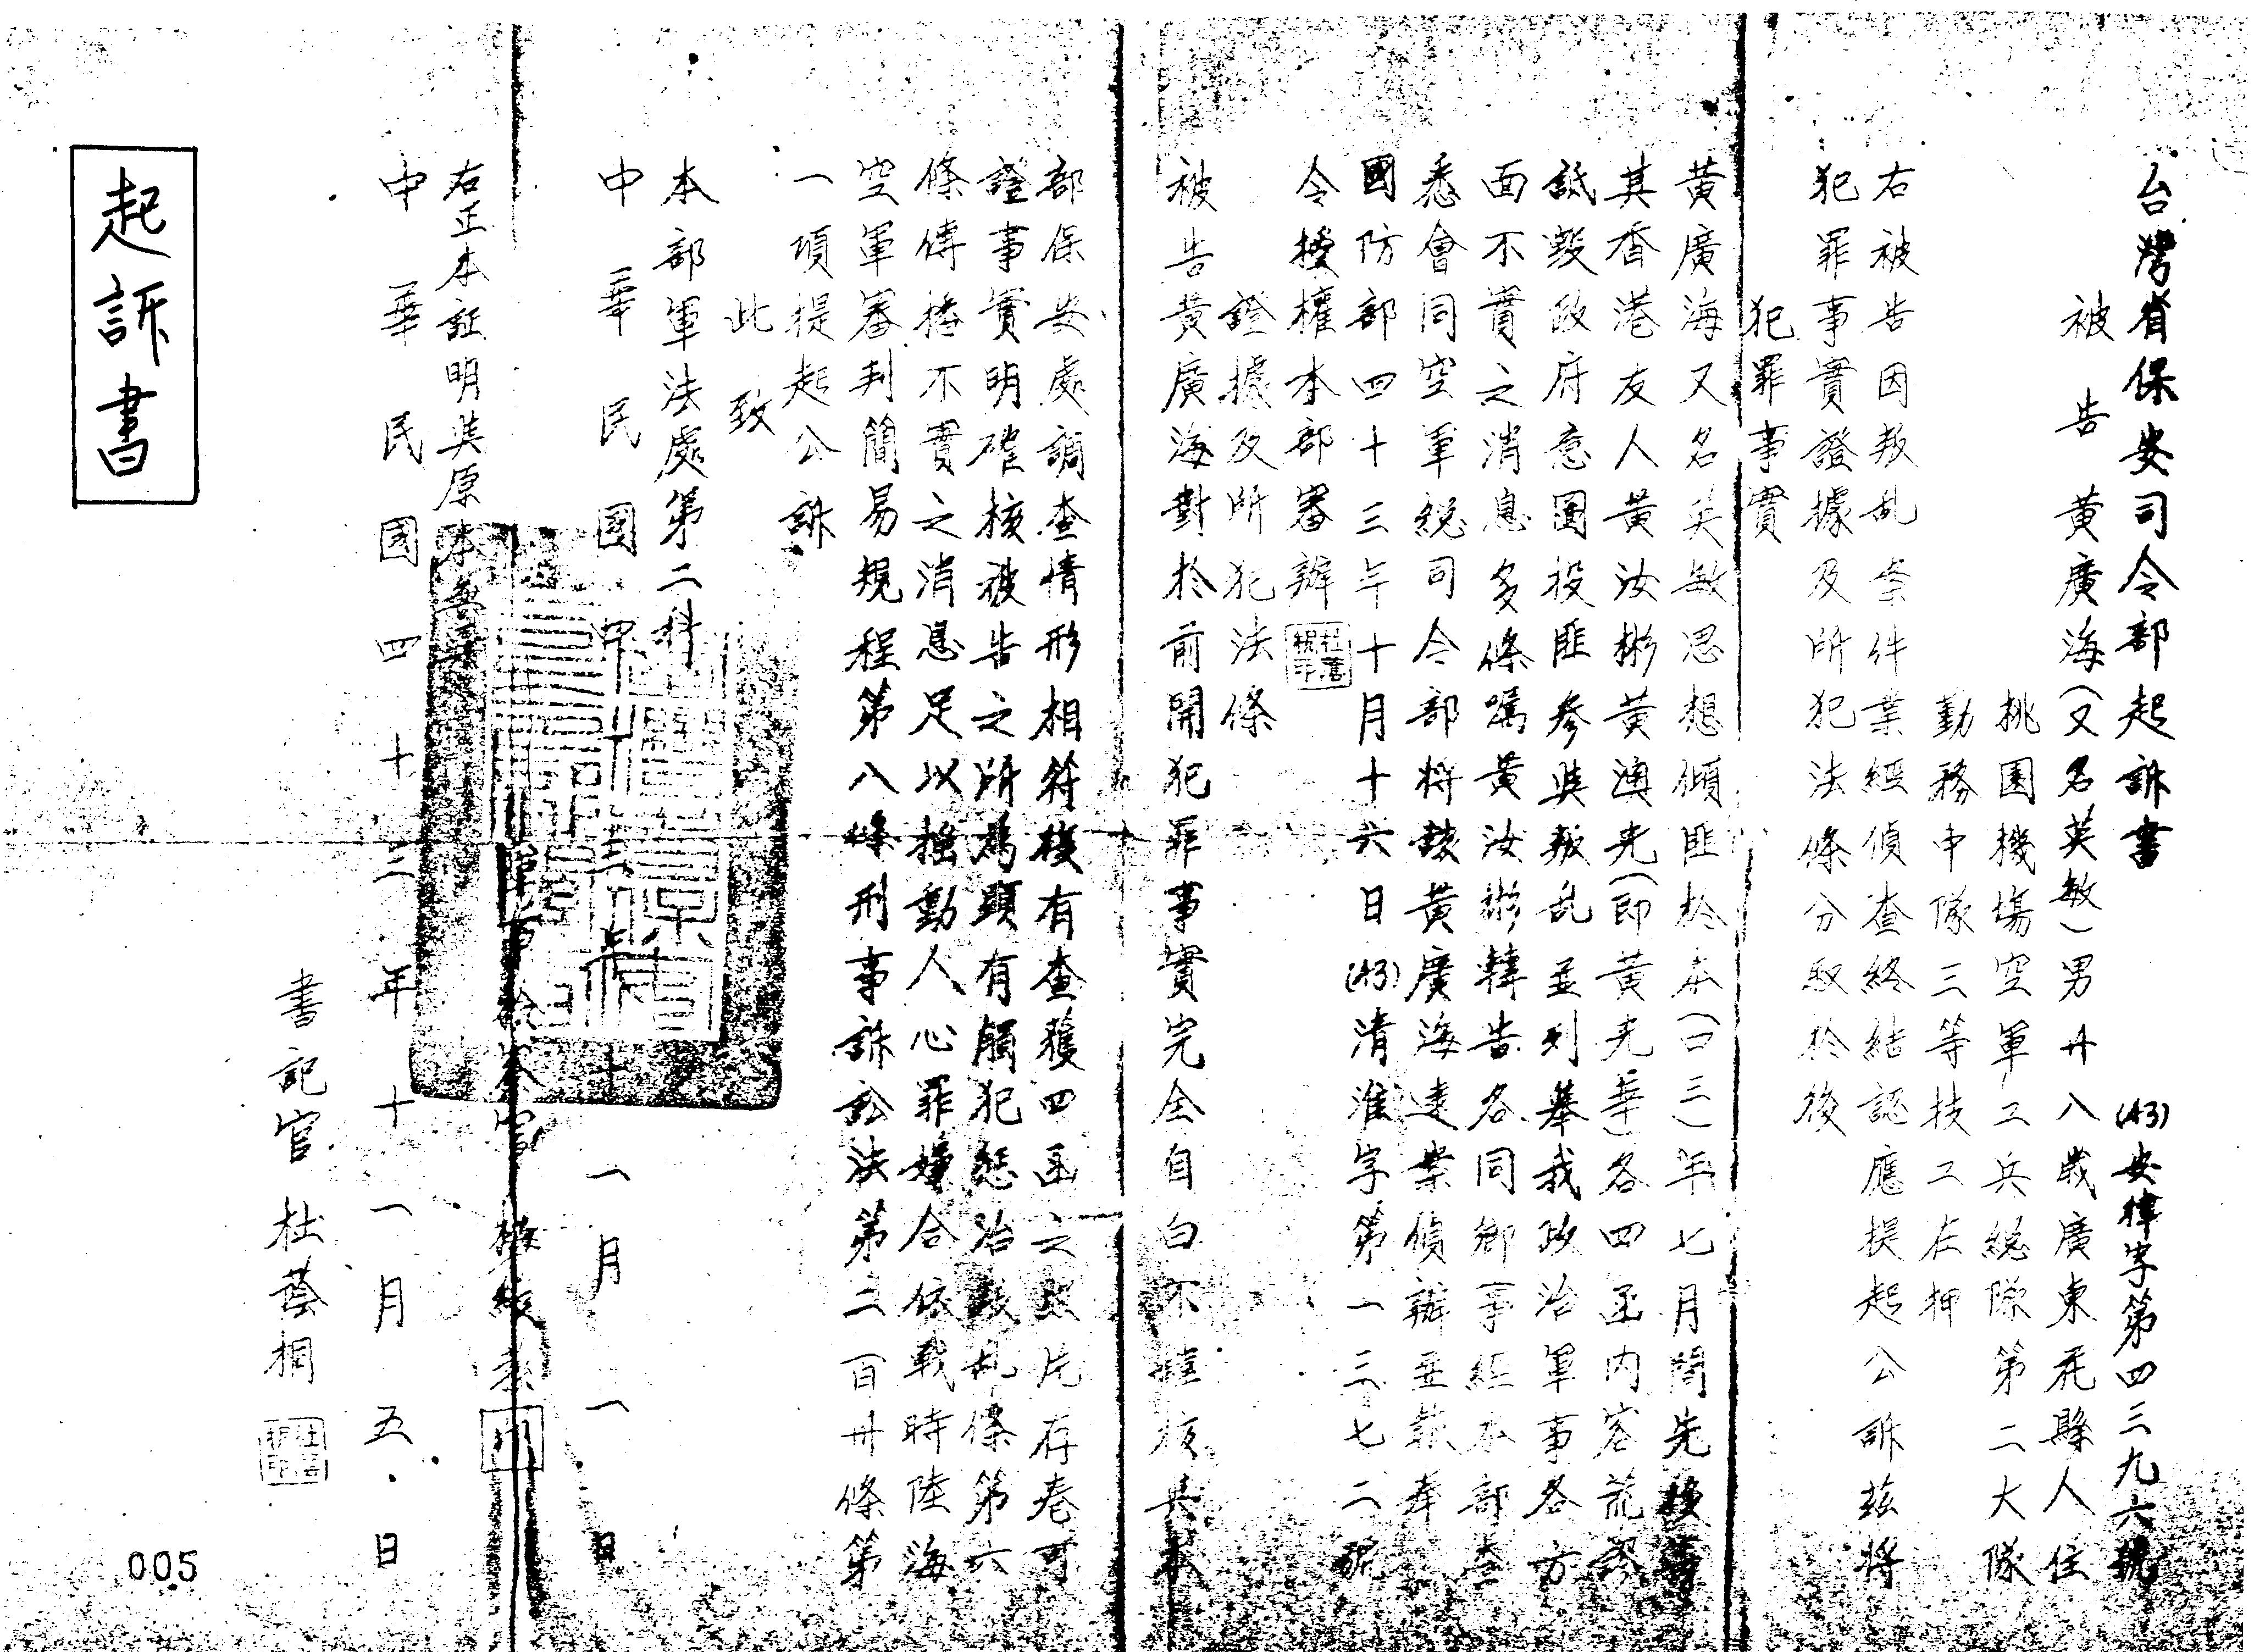 台灣省保安司令部起訴書
(43)安律字第四三九六號
被告 黃廣海(又名英敏)男卅八歲廣東 縣人住
桃園機場空軍工兵總隊第二大隊
勤務中隊三等技工在押
右被告因叛乱案件業經偵查終結認應提起公訴茲將
犯罪事實證據及所犯法條分敘於後
犯罪事實
黃廣海又名英敏思想傾匪於本(四三)年七月間先後
其香港友人黃汝彬黃漢光(即黃光華)各四函內容荒謬
詆毀政府意圖投匪參與叛乱並列舉我政治軍事各方
面不實之消息多條囑黃汝彬轉告各同鄉(事經本部查
悉會同空軍總司令部將該黃廣海逮案偵辦並報奉
國防部四十三年十月十六日(43)清淮字第一三七二號
令授權本部審辦
證據及所犯法條
被告黃廣海對於前開犯罪事實完全自白不諱核與本
部保安處調查情形相符復有查獲四函之照片存卷可
證事實明確核被告之所為顯有觸犯懲治叛乱條第六
條傳播不實之消息足以搖動人心罪嫌合依戰時陸海
空軍審判簡易規程第八條刑事訴訟法第二百卅條第
一項提起公訴
此致
本部軍法處第二科
中華民國四十三年十一月一日
軍事檢察官
右正本証明與原本無異
中華民國四十三年十一月五日
書記官 杜蔭桐
起訴書
005